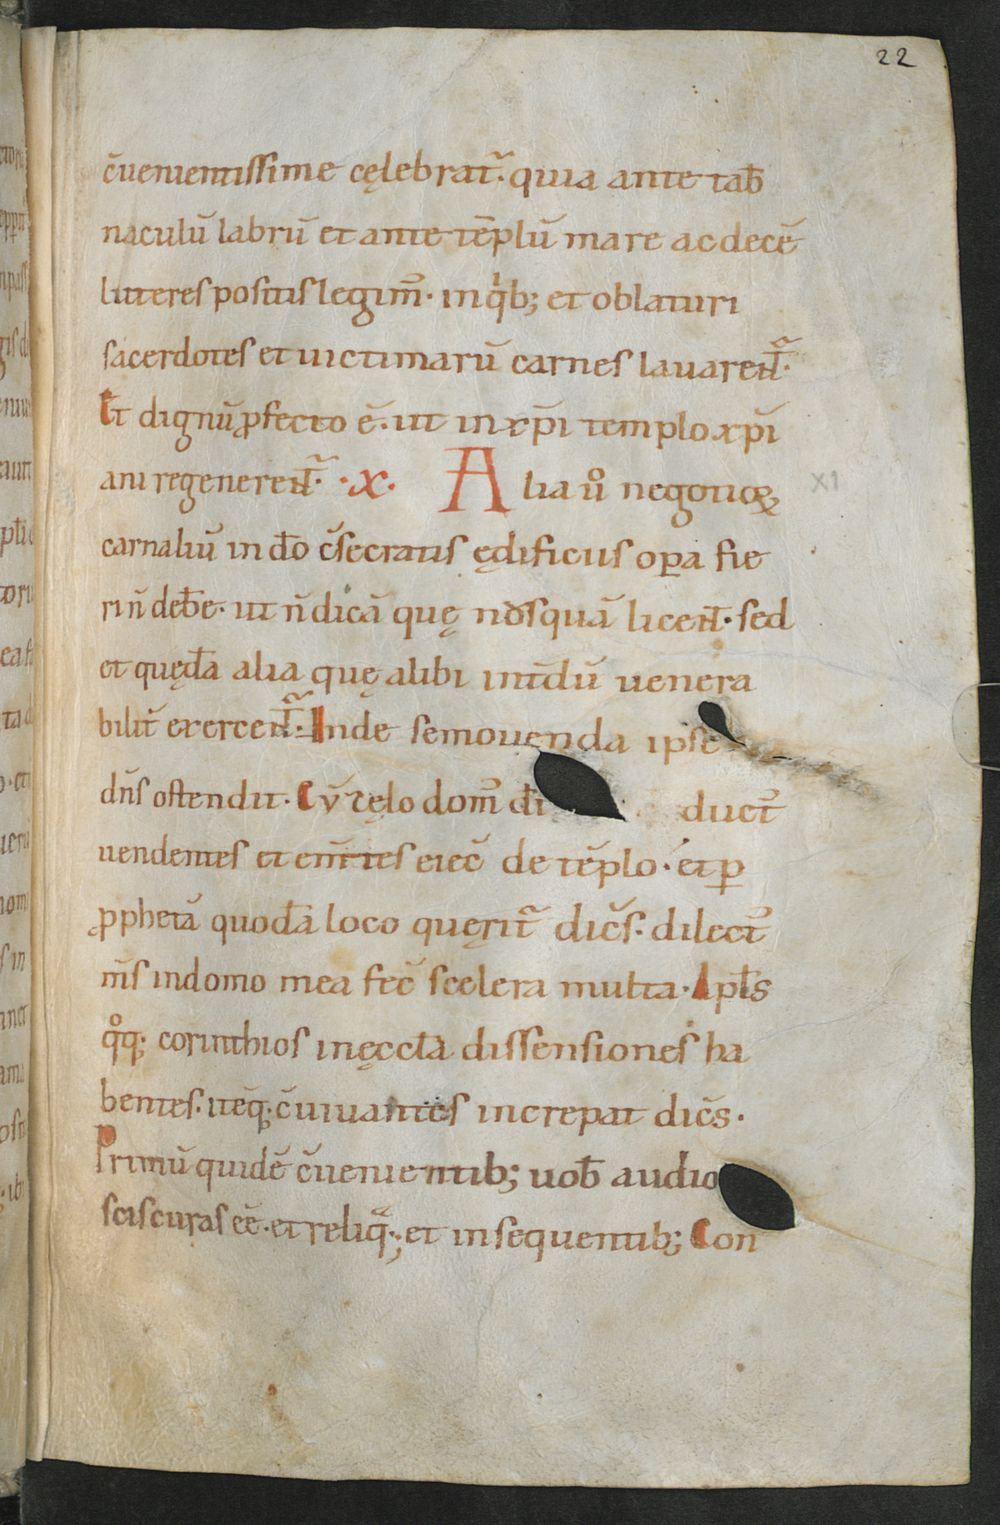 22
c̄uenientissime cęlebrat᷑. quia ante tab̄
naculū labrū et ante tēplū mare ac decē
luteres positis legim᷒. in qͥb; et oblaturi
sacerdotes et uictimarū carnes lauarent᷑.
Et dignū ꝓfecto ē. ut in xp̄i templo xp̄i
ani regenerent᷑. .X. Alia ů negotioꝝ XI
carnaliū in dō c̄secratis ędificiis oꝑa fie
ri n̄ deb̄e. ut n̄ dicā quę nusquā licent. sed
et quędā alia quę alibi int̄dū uenera
bilit̄ exercent᷑. Inde semouenda ipse
dn̄s ostendit. Cū zęlo dom᷒ dī duct᷒
uendentes et em̄tes eiec̄ de tēplo. et ꝑ
ꝓphetā quodā loco querit᷑ dic̄s. dilect᷒
m̄s in domo mea fec̄ scelera multa. Apl̄s
qͦq; corinthios in ęccl̄a dissensiones ha
bentes. iteq; c̄uiuantes increpat dic̄s.
Primū quidē c̄uenientib; uob̄ audio
sciscuras eē. et reliq̄.; et in sequentib; Con